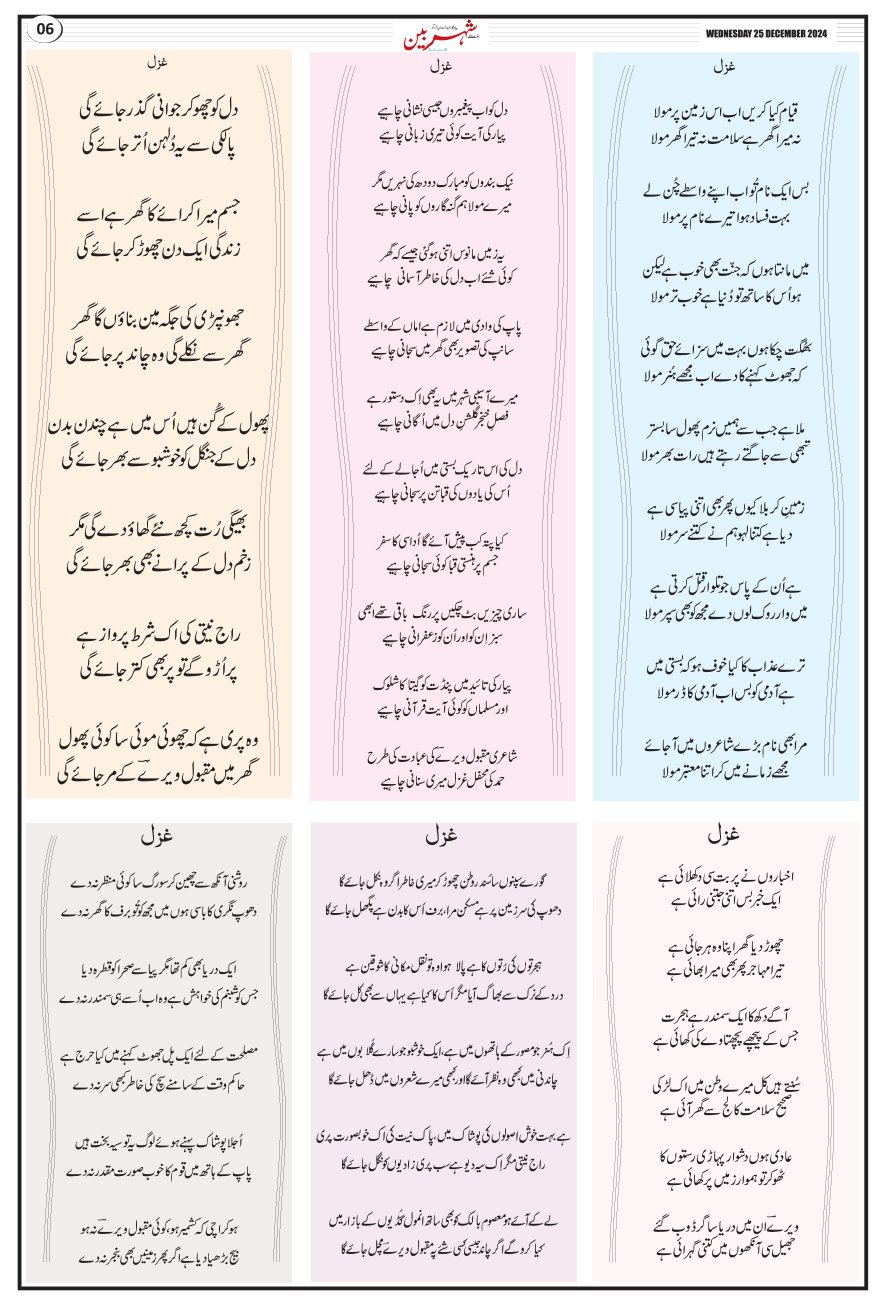 06
شہربین
WEDNESDAY 25 DECEMBER 2024
غزل
قیام کیا کریں اب اس زمین پر مولا
نہ میرا گھر ہے سلامت نہ تیرا گھر مولا
بس ایک نام تُو اب اپنے واسطے چُن لے
بہت فساد ہوا تیرے نام پر مولا
میں مانتا ہوں کہ جنّت بھی خوب ہے لیکن
ہو اُس کا ساتھ تو دُنیا ہے خوب تر مولا
بھگت چکا ہوں بہت میں سزائے حق گوئی
کہ جھوٹ کہنے کا دے اب مجھے ہُنر مولا
ملا ہے جب سے ہمیں نرم پھول سا بستر
تبھی سے جاگتے رہتے ہیں رات بھر مولا
زمینِ کربلا کیوں پھر بھی اتنی پیاسی ہے
دیا ہے کتنا لہو ہم نے کتنے سر مولا
ہے اُن کے پاس جو تلوار قتل کرتی ہے
میں وار روک لوں دے مجھ کو بھی سپر مولا
ترے عذاب کا کیا خوف ہو کہ بستی میں
ہے آدمی کو بس اب آدمی کا ڈر مولا
مرا بھی نام بڑے شاعروں میں آ جائے
مجھے زمانے میں کر اتنا معتبر مولا
غزل
دل کو اب پیغمبروں جیسی نشانی چاہیے
پیار کی آیت کوئی تیری زبانی چاہیے
نیک بندوں کو مبارک دودھ کی نہریں مگر
میرے مولا ہم گنہ گاروں کو پانی چاہیے
یہ زمیں مانوس اتنی ہوگئی جیسے کہ گھر
کوئی شئے اب دل کی خاطر آسمانی چاہیے
پاپ کی وادی میں لازم ہے اماں کے واسطے
سانپ کی تصویر بھی گھر میں سجانی چاہیے
میرے آسیبی شہر میں یہ بھی اِک دستور ہے
فصلِ خنجر گلشنِ دل میں اُگانی چاہیے
دل کی اس تاریک بستی میں اُجالے کے لئے
اُس کی یادوں کی قبا تن پر سجانی چاہیے
کیا پتہ کب پیش آئے گا اُداسی کا سفر
جسم پر ہنستی قبا کوئی سجانی چاہیے
ساری چیزیں بٹ چکیں پر رنگ باقی تھے ابھی
سبز اِن کو اور اُن کو زعفرانی چاہیے
پیار کی تائید میں پنڈت کو گیتا کا شلوک
اور مسلماں کو کوئی آیت قرآنی چاہیے
شاعری مقبول ویرے کی عبادت کی طرح
حمد کی محفل غزل میری سنانی چاہیے
غزل
دل کو چھو کر جوانی گذر جائے گی
پالکی سے یہ دُلہن اُتر جائے گی
جسم میرا کرائے کا گھر ہے اسے
زندگی ایک دن چھوڑ کر جائے گی
جھونپڑی کی جگہ مین بناؤں گا گھر
گھر سے نکلے گی وہ چاند پر جائے گی
پھول کے گُن ہیں اُس میں ہے چندن بدن
دل کے جنگل کو خوشبو سے بھر جائے گی
بھیگی رُت کچھ نئے گھاؤ دے گی مگر
زخم دل کے پرانے بھی بھر جائے گی
راج نیتی کی اک شرط پرواز ہے
پر اُڑو گے تو پر بھی کتر جائے گی
وہ پری ہے کہ چھوئی موئی سا کوئی پھول
گھر میں مقبول ویرے کے مر جائے گی
غزل
اخباروں نے پربت سی دکھلائی ہے
ایک خبر بس اتنی جتنی رائی ہے
چھوڑ دیا گھر اپنا وہ ہرجائی ہے
تیرا مہاجر پھر بھی میرا بھائی ہے
آگے دکھ کا ایک سمندر ہے ہجرت
جس کے پیچھے پچھتاوے کی کھائی ہے
سُنتے ہیں کل میرے وطن میں اک لڑکی
صحیح سلامت کالج سے گھر آئی ہے
عادی ہوں دشوار پہاڑی رستوں کا
ٹھوکر تو ہموار زمیں پر کھائی ہے
ویرے اُن میں دریا ساگر ڈوب گئے
جھیل سی آنکھوں میں کتنی گہرائی ہے
غزل
گورے سپنوں سا سندر وطن چھوڑ کر میری خاطر اگر وہ نکل جائے گا
دھوپ کی سرزمین پر ہے مسکن مرا، برف اُس کا بدن ہے پگھل جائے گا
ہجرتوں کی رُتوں کا ہے پالا ہوا وہ تو نقل مکانی کا شوقین ہے
درد کے نرک سے بھاگ آیا مگر اُس کا کیا ہے یہاں سے بھی کل جائے گا
اِک ہُنر جو مصور کے ہاتھوں میں ہے، ایک خوشبو جو سارے گُلابوں میں ہے
چاندنی میں کبھی وہ نظر آئے گا اور کبھی میرے شعروں میں ڈھل جائے گا
ہے بہت خوش اصولوں کی پوشاک میں، پاک نیت کی اک خوبصورت پری
راج نیتی مگر اِک سیہ دیو ہے سب پری زادیوں کو نگل جائے گا
لے کے آئے ہو معصوم بالک کو بھی ساتھ انمول گُڈیوں کے بازار میں
کیا کرو گے اگر چاند جیسی کسی شئے پہ مقبول ویرے مچل جائے گا
غزل
روشنی آنکھ سے چھین کر سورگ سا کوئی منظر نہ دے
دھوپ نگری کا باسی ہوں میں مجھ کو تُو برف کا گھر نہ دے
ایک دریا بھی کم تھا مگر پیاسے صحرا کو قطرہ دیا
جس کو شبنم کی خواہش ہے وہ اب اُسے ہی سمندر نہ دے
مصلحت کے لئے ایک پل جھوٹ کہنے میں کیا حرج ہے
حاکم وقت کے سامنے سچ کی خاطر کبھی سر نہ دے
اُجلا پوشاک پہنے ہوئے لوگ یہ تو سیہ بخت ہیں
پاپ کے ہاتھ میں قوم کا خوب صورت مقدر نہ دے
ہو کراچی کہ کشمیر ہو، کوئی مقبول ویرے نہ ہو
بیج بڑھیا دیا ہے اگر پھر زمینیں بھی بنجر نہ دے